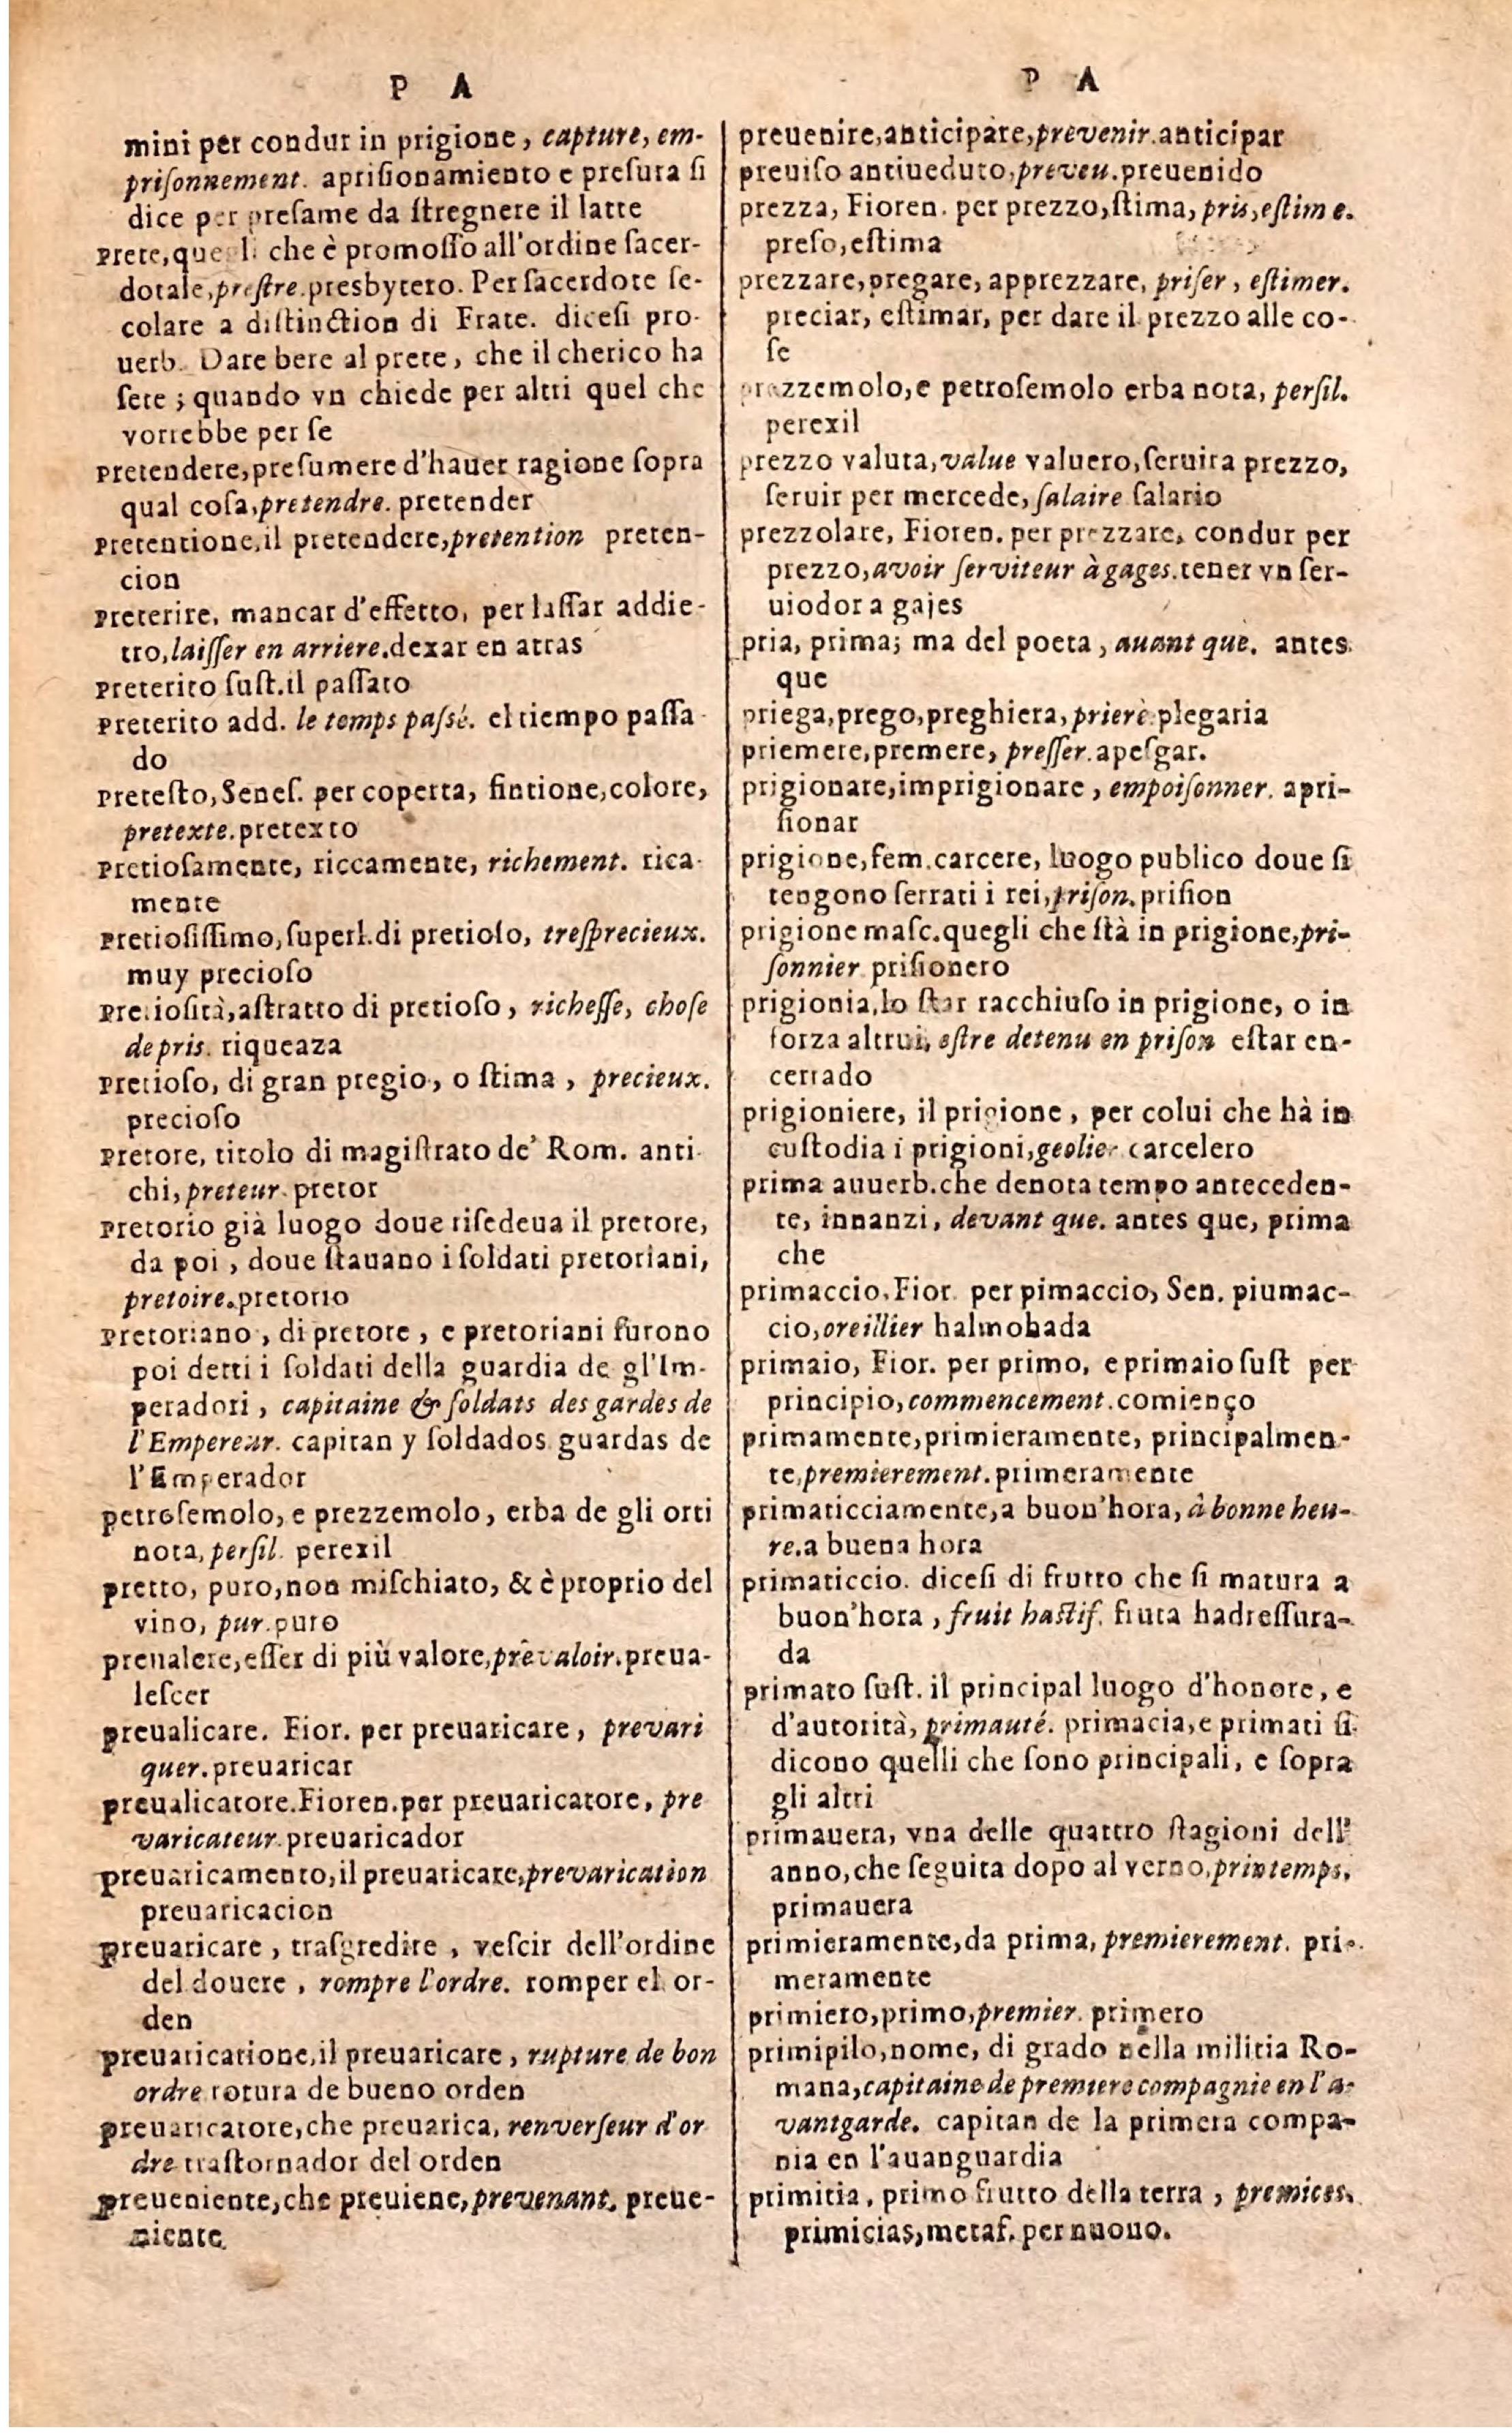 P A
mini per condur in prigione, capture, em-
priſonnement. apriſionamiento e preſura ſi
dice per preſame da ſtregnere il latte
prete, quegli che è promoſſo all'ordine ſacer-
dotale, preſtre. presbytero. Per ſacerdote ſe-
colare a diſtinction di Frate. diceſi pro-
uerb. Dare bere al prete, che il cherico ha
ſete; quando vn chiede per altri quel che
vorrebbe per ſe
pretendere, preſumere d'hauer ragione ſopra
qual coſa, pretendre. pretender
pretentione, il pretendere, pretention preten-
cion
preterire, mancar d'effetto, per laſſar addie-
tro, laiſſer en arriere. dexar en atras
preterito ſuſt. il paſſato
preterito add. le temps paſsé. el tiempo paſſa-
do
preteſto, Seneſ. per coperta, fintione, colore,
pretexte. pretexto
pretioſamente, riccamente, richement. rica-
mente
pretioſiſſimo, ſuperl. di pretioſo, treſprecieux.
muy precioſo
pretioſità, aſtratto di pretioſo, richeſſe, choſe
de pris. riqueaza
pretioſo, di gran pregio, o ſtima, precieux.
precioſo
pretore, titolo di magiſtrato de' Rom. anti-
chi, preteur. pretor
pretorio già luogo doue riſedeua il pretore,
da poi, doue ſtauano i ſoldati pretoriani,
pretoire. pretorio
pretoriano, di pretore, e pretoriani furono
poi detti i ſoldati della guardia de gl'Im-
peradori, capitaine & ſoldats des gardes de
l'Empereur. capitan y ſoldados guardas de
l'Emperador
petroſemolo, e prezzemolo, erba de gli orti
nota, perſil. perexil
pretto, puro, non miſchiato, & è proprio del
vino, pur. puro
preualere, eſſer di più valore, prêvaloir. preua-
leſcer
preualicare. Fior. per preuaricare, prevari
quer. preuaricar
preualicatore. Fioren. per preuaricatore, pre
varicateur. preuaricador
preuaricamento, il preuaricare, prevarication
preuaricacion
preuaricare, traſgredire, veſcir dell'ordine
del douere, rompre l'ordre. romper el or-
den
preuaricatione, il preuaricare, rupture de bon
ordre rotura de bueno orden
preuaricatore, che preuarica, renverſeur d'or
dre traſtornador del orden
preueniente, che preuiene, prevenant. preue-
niente
P A
preuenire, anticipare, prevenir. anticipar
preuiſo antiueduto, preveu. preuenido
prezza, Fioren. per prezzo, ſtima, pris, eſtime.
preſo, eſtima
prezzare, pregare, apprezzare, priſer, eſtimer.
preciar, eſtimar, per dare il prezzo alle co-
ſe
prezzemolo, e petroſemolo erba nota, perſil.
perexil
prezzo valuta, value valuero, ſeruira prezzo,
ſeruir per mercede, ſalaire ſalario
prezzolare, Fioren. per prezzare, condur per
prezzo, avoir ſerviteur à gages. tener vn ſer-
uiodor a gajes
pria, prima; ma del poeta, auant que. antes
que
priega, prego, preghiera, prierè. plegaria
priemere, premere, preſſer. apeſgar.
prigionare, imprigionare, empoiſonner. apri-
ſionar
prigione, fem. carcere, luogo publico doue ſi
tengono ſerrati i rei, priſon. priſion
prigione maſc. quegli che ſtà in prigione, pri-
ſonnier priſionero
prigionia, lo ſtar racchiuſo in prigione, o in
forza altrui, eſtre detenu en priſon eſtar en-
cerrado
prigioniere, il prigione, per colui che hà in
cuſtodia i prigioni, geolier carcelero
prima auuerb. che denota tempo anteceden-
te, innanzi, devant que. antes que, prima
che
primaccio. Fior. per pimaccio, Sen. piumac-
cio, oreillier halmohada
primaio, Fior. per primo, e primaio ſuſt per
principio, commencement. comienço
primamente, primieramente, principalmen-
te, premierement. primeramente
primaticciamente, a buon'hora, à bonne heu-
re. a buena hora
primaticcio. diceſi di frutto che ſi matura a
buon'hora, fruit haſtif. fruta hadreſſura-
da
primato ſuſt. il principal luogo d'honore, e
d'autorità, primauté. primacia, e primati ſi
dicono quelli che ſono principali, e ſopra
gli altri
primauera, vna delle quattro ſtagioni dell'
anno, che ſeguita dopo al verno, printemps.
primauera
primieramente, da prima, premierement. pri-
meramente
primiero, primo, premier. primero
primipilo, nome, di grado nella militia Ro-
mana, capitaine de premiere compagnie en l'a-
vantgarde. capitan de la primera compa-
nia en l'auanguardia
primitia, primo frutto della terra, premices.
primicias, metaf. per nuouo.